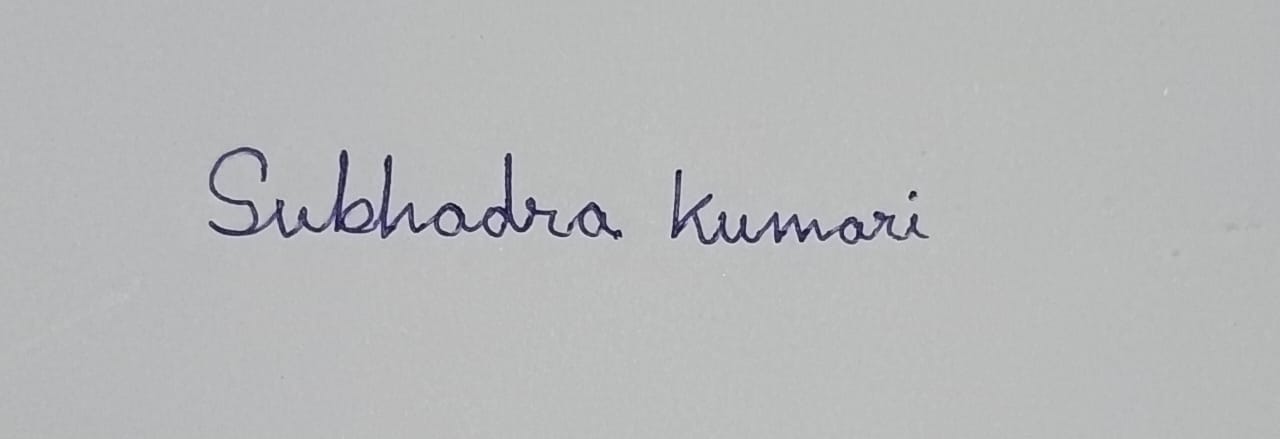 Subhadra Kumari